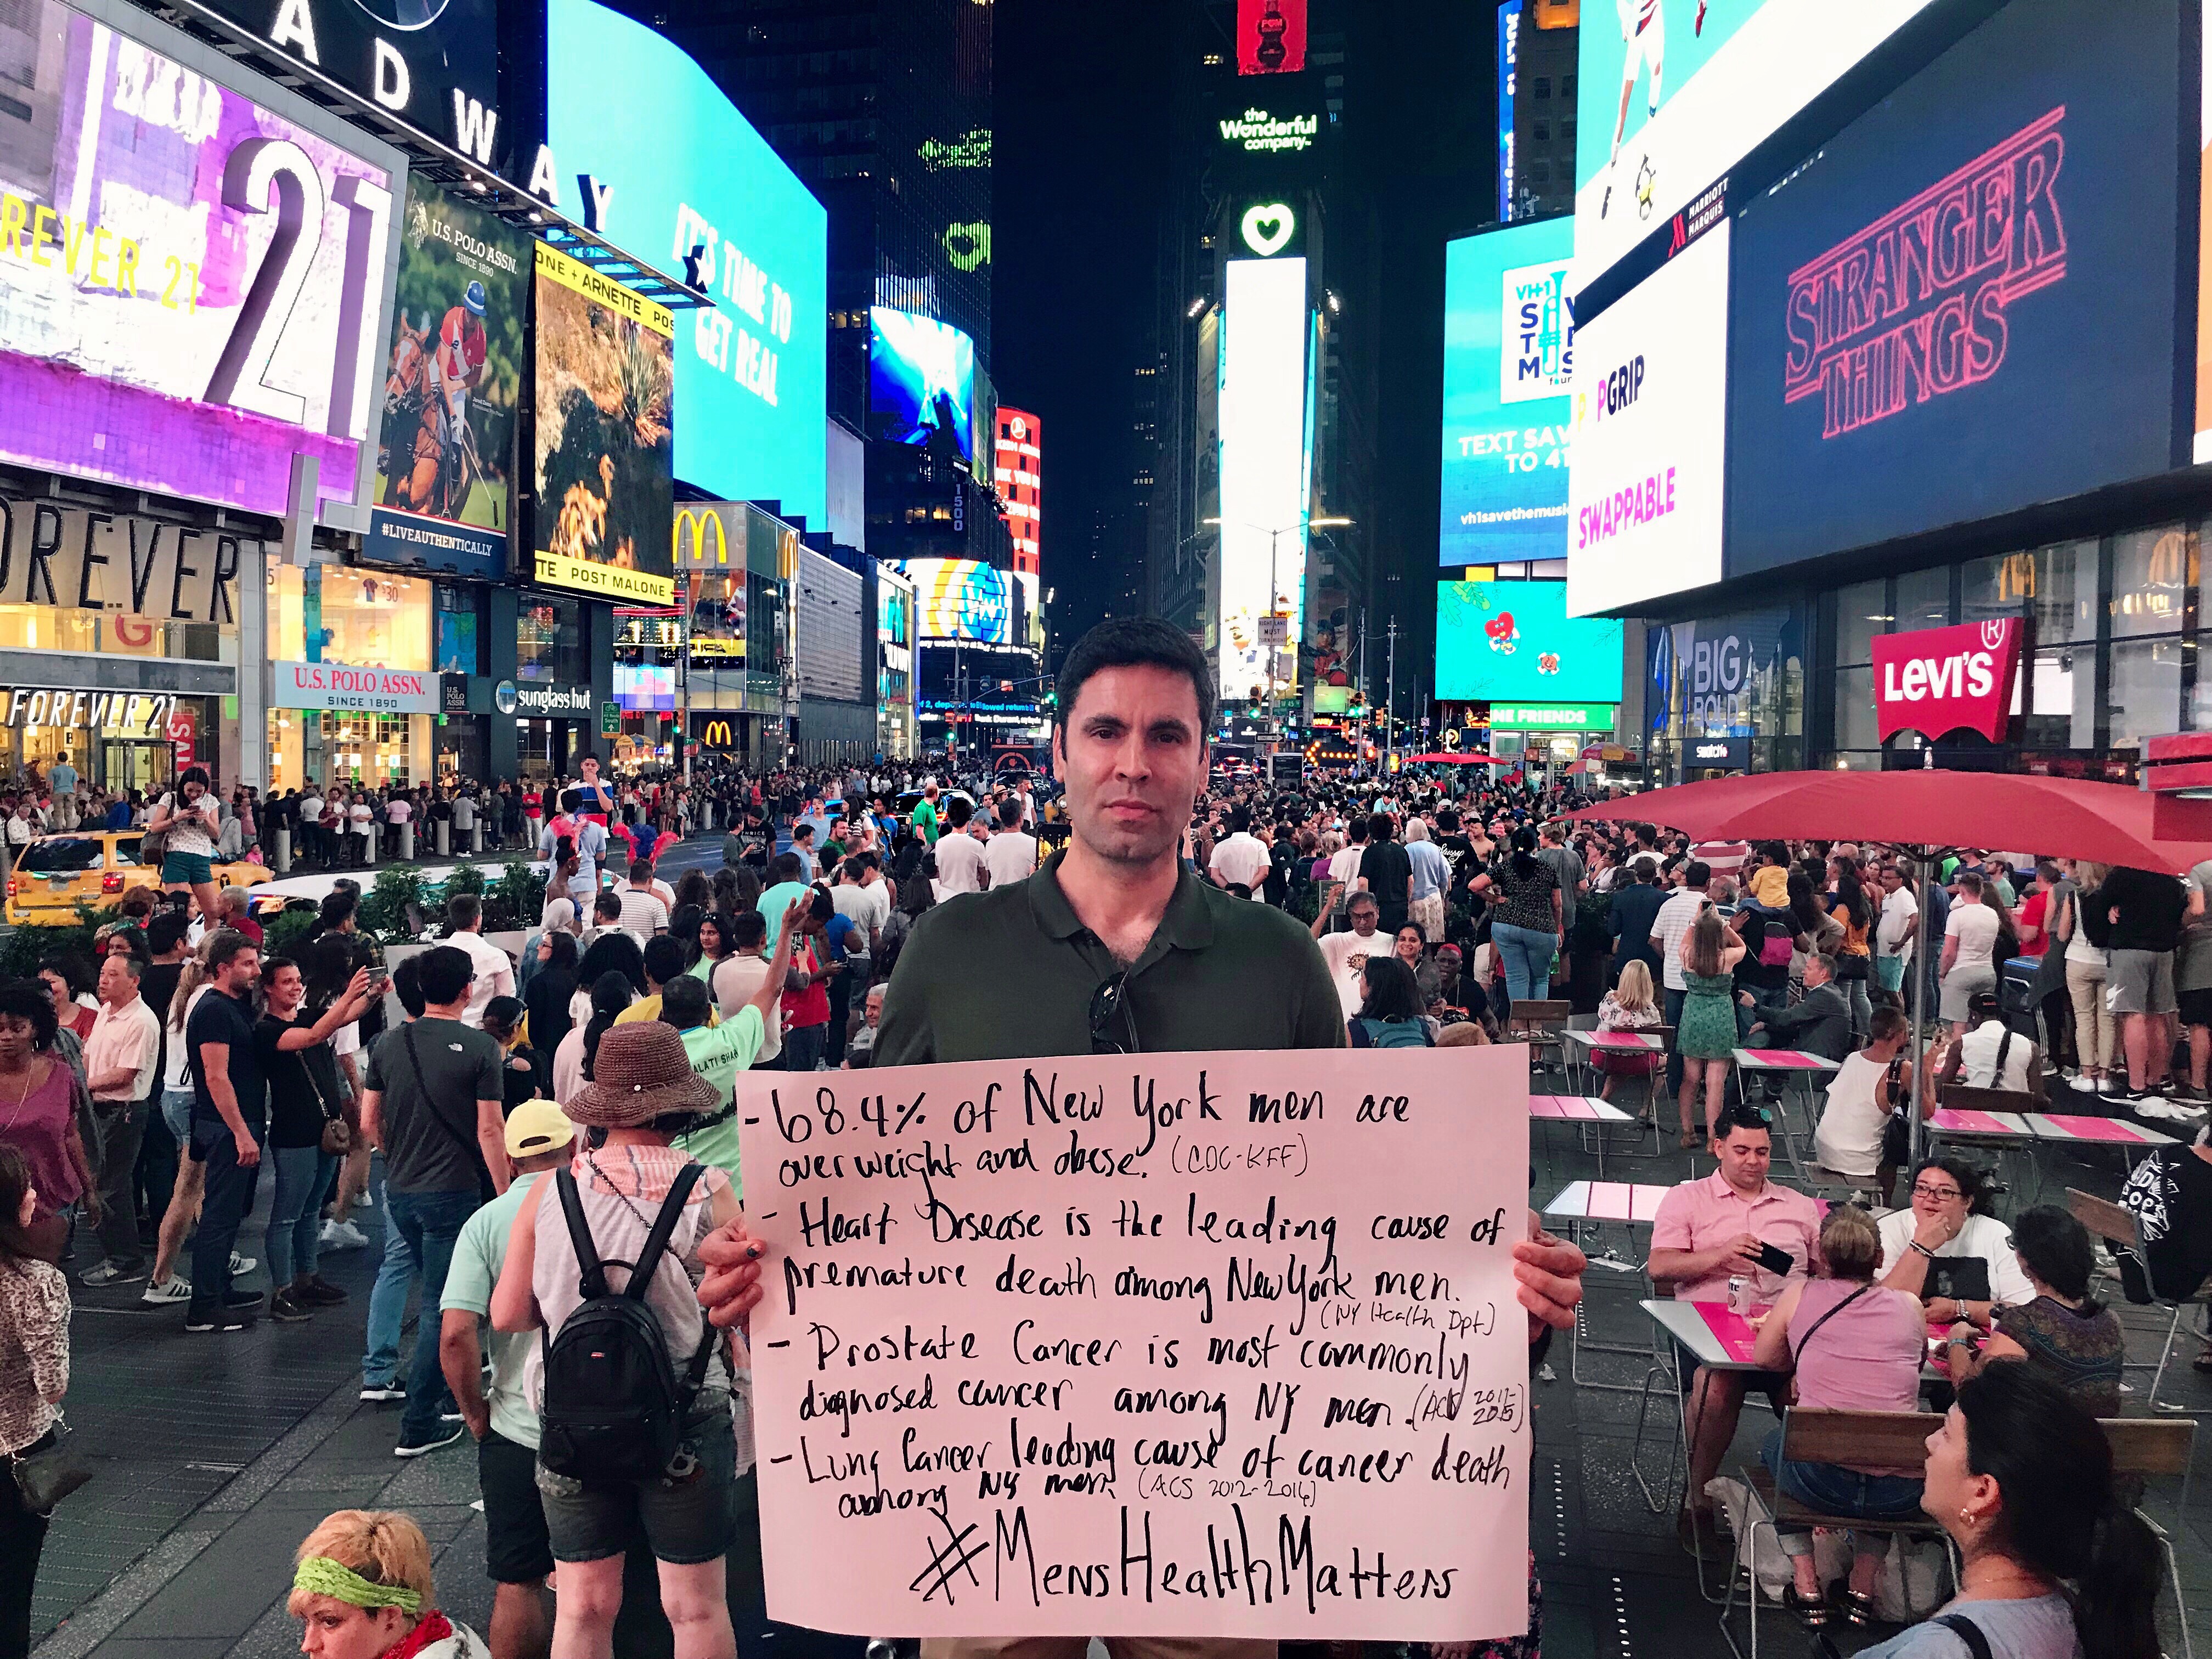 ADWAY
21
REVER 21
U.S. POLO ASSN.
SINCE 1890
#LIVEAUTHENTICALLY
ONE + ARNETTE POS
TE POST MALONE
IT'S TIME TO
GET REAL
1500
PGM
the
Wonderful
company
VH1
TEXT SAV
TO 41
vh1savethemusi
MARRIOTT
MARQUIS
PGRIP
SWAPPABLE
STRANGER
THINGS
OREVER
FOREVER 21
U.S. POLO ASSN.
SINCE 1890
sunglass hut
BIG
BOLD
swatch
LEVI'S®
NE FRIENDS
- 68.4% of New York men are
overweight and obese. (CDC-KFF)
- Heart Disease is the leading cause of
premature death among New York men.
(NY Health Dpt)
- Prostate Cancer is most commonly
diagnosed cancer among NY men.
- Lung Cancer leading cause of cancer death
among NY men. (ACS 2012-2016)
#MensHealthMatters